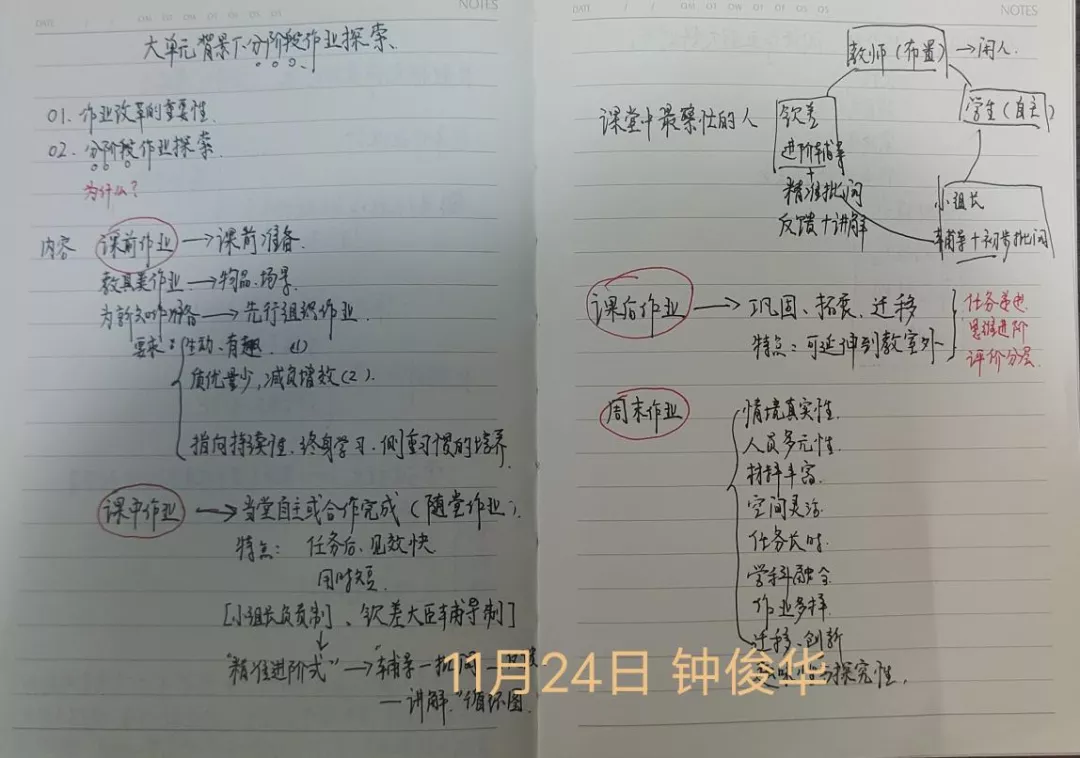 DATE / /
NOTES
大单元背景下分阶段作业探索、
01. 作业改革的重要性.
02. 分阶段作业探索.
为什么?
内容 课前作业 → 课前准备.
教具类作业 → 物品、场景.
为新知作准备 → 先行组织作业.
要求: 生动、有趣 (1)
质优量少, 减负增效(2).
指向持续性、终身学习、侧重习惯的培养.
课中作业 → 当堂自主或合作完成 (随堂作业).
特点: 任务后、见效快
用时短.
[小组长负责制]、钦差大臣辅导制]
"精准进阶式" → 辅导—批阅
—讲解."循环图.
DATE / /
NOTES
教师(布置) → 闲人.
学生(自主)
课堂中最繁忙的人
钦差
进阶辅导
+
精准批阅
反馈+讲解
小组长
辅导+初步批阅
课后作业 → 巩固、拓展、迁移
特点: 可延伸到教室外
任务递进
思维进阶
评价分层
周末作业
情境真实性.
人员多元性.
材料丰富.
空间灵活.
任务长时.
学科融合
作业多样.
迁移、创新
探究性.
11月24日 钟俊华